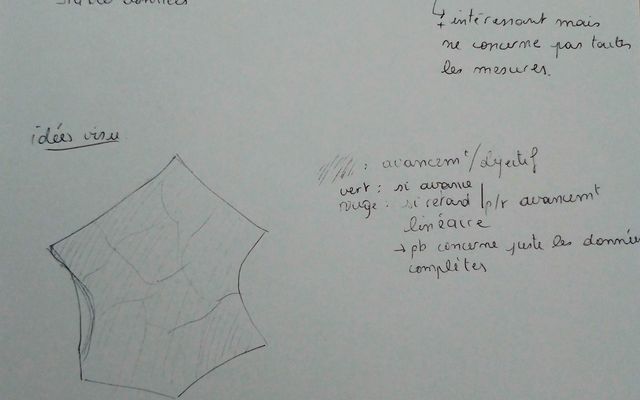 données
↳ + intéressant mais
ne concerne pas toutes
les mesures.
idées visu
: avancemt/objectif
vert : si avance
rouge : si retard | p/r avancemt
linéaire
→ pb concerne juste les données
complètes